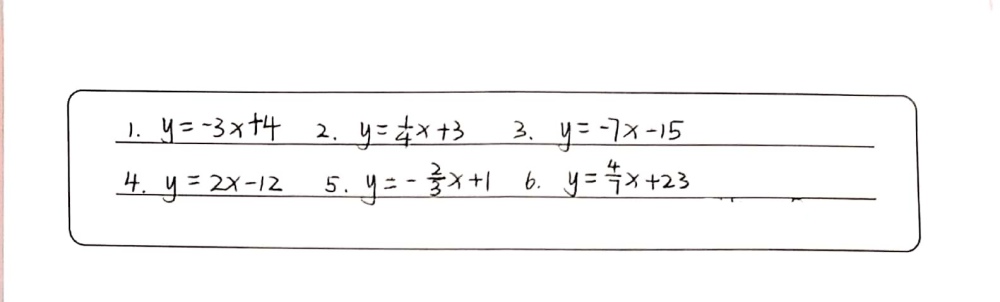 1. y=-3x+4 2. y=1/4x+3 3. y=-7x-15
4. y=2x-12 5. y=-2/3x+1 6. y=4/7x+23